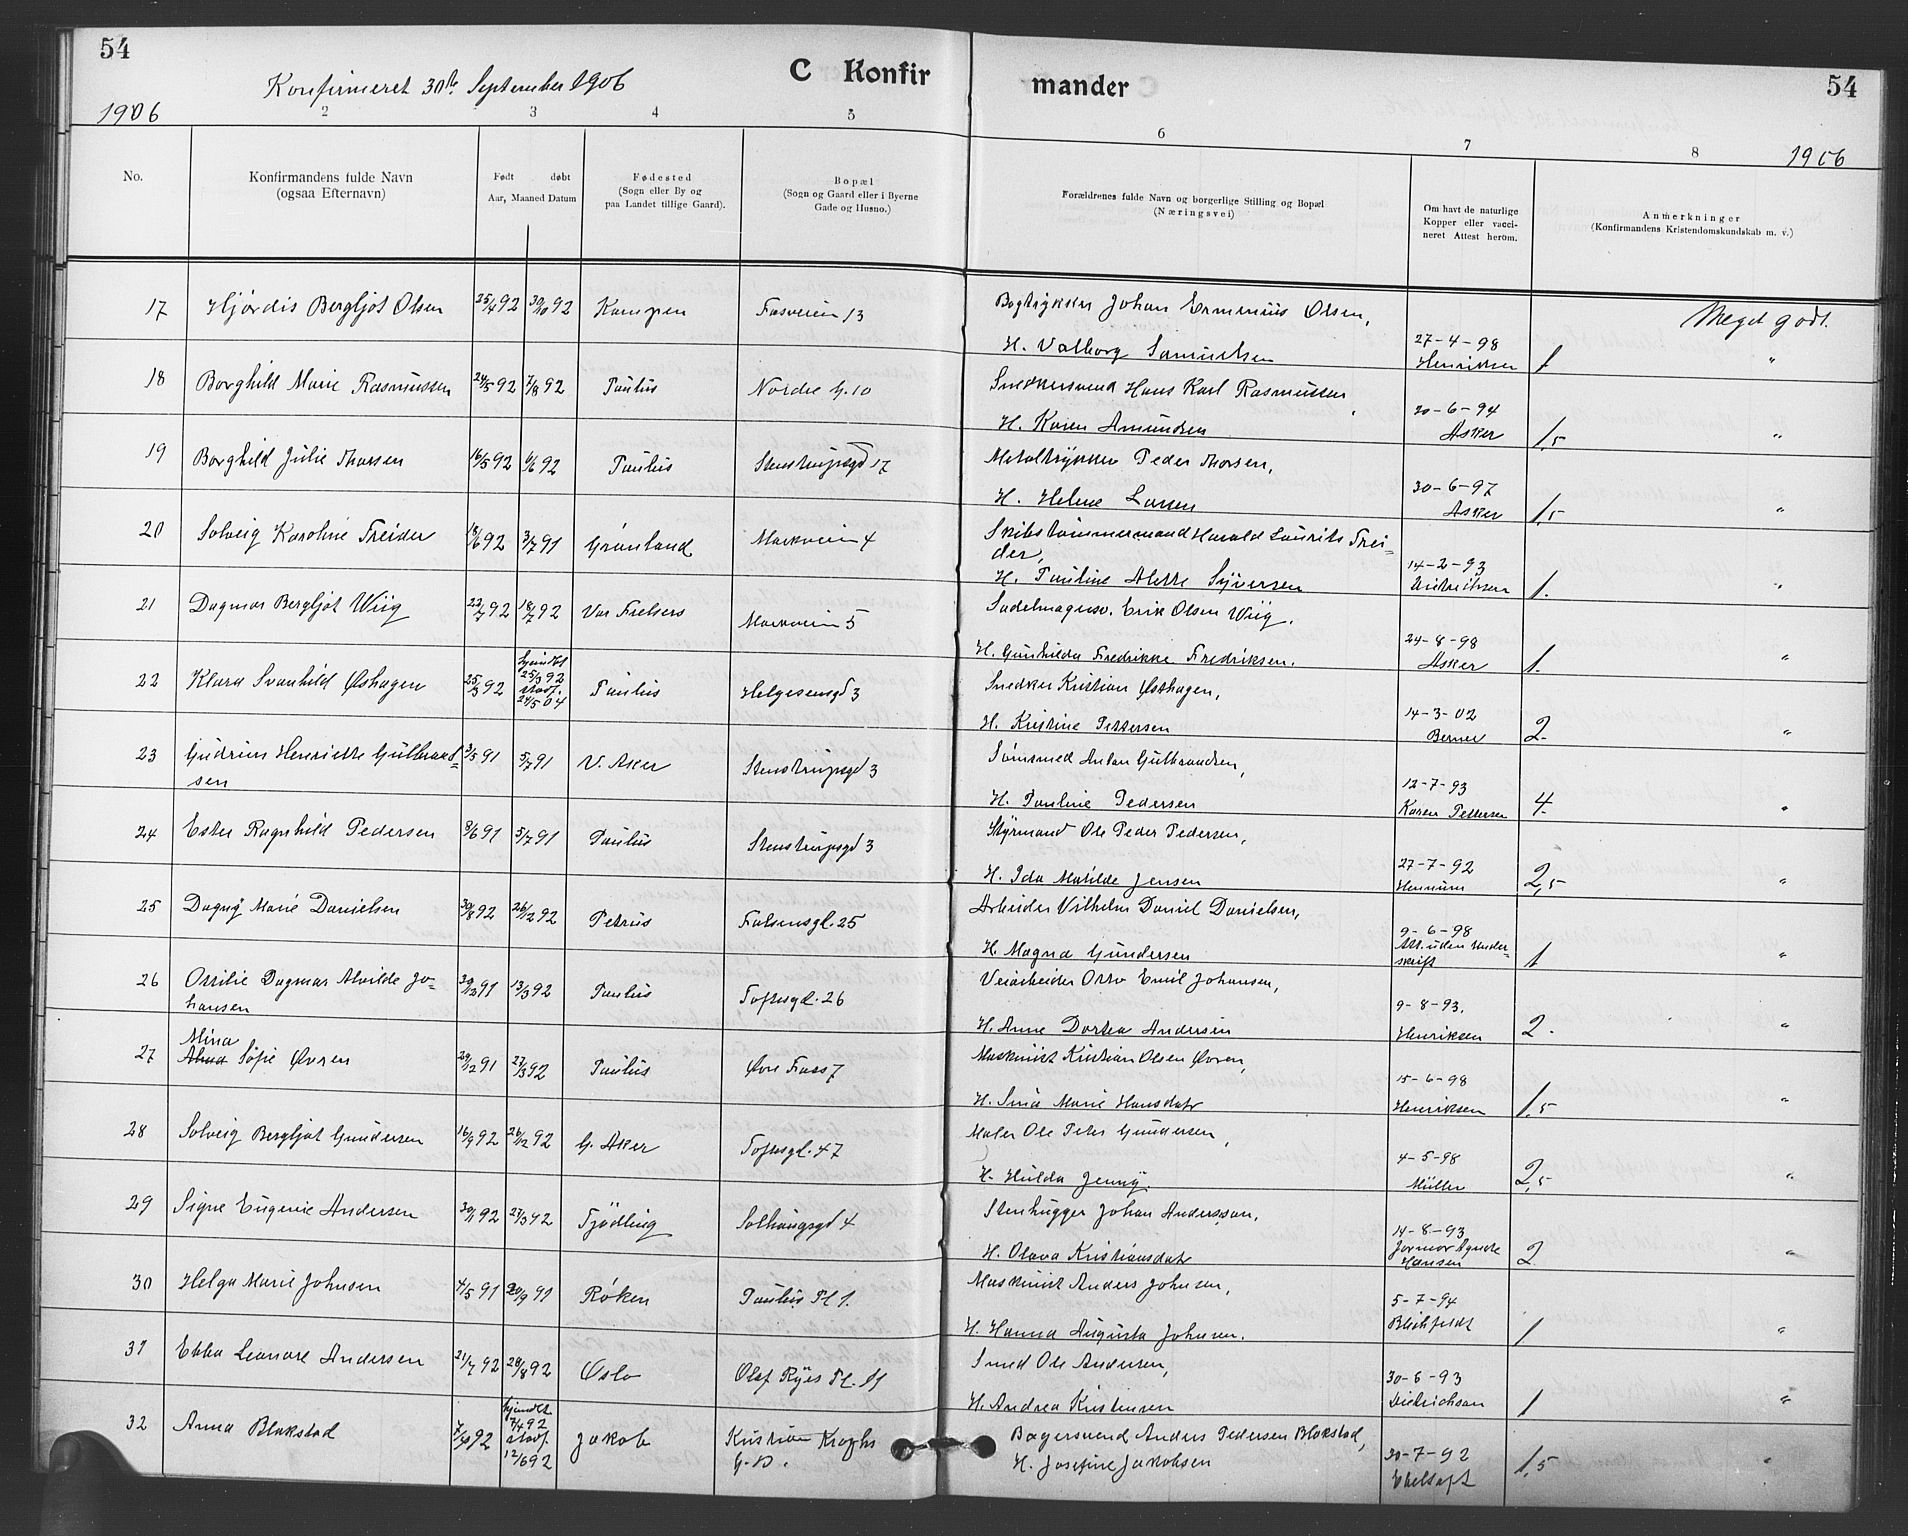 54
C Konfir
mander
54
Konfirmeret 30te September 1906
1906
2
3
4
5
6
7
8
1906
No.
Konfirmandens fulde Navn
(ogsaa Efternavn)
Født døbt
Aar, Maaned Datum
Fødested
(Sogn eller By og
paa Landet tillige Gaard).
Bopæl
(Sogn og Gaard eller i Byerne
Gade og Husno.)
Forældrenes fulde Navn og borgerlige Stilling og Bopæl
(Næringsvei)
Om havt de naturlige
Kopper eller vacci-
neret Attest herom.
Anmerkninger
(Konfirmandens Kristendomskundskab m. v.)
17 Hjørdis Bergljot Olsen 25/4 92 30/10 92 Kampen Fosveien 13 Bogtrykker Johan Olsen,
H. Valborg Samuelsen 27-4-98
Henriksen 1 Meget godt.
18 Borghild Marie Rasmussen 24/5 92 7/8 92 Paulus Nordre G. 10 Snedkersvend Hans Karl Rasmussen,
H. Karen Amundsen 20-6-94
Asker 1,5 "
19 Borghild Julie Thorsen 16/5 92 6/6 92 Paulus Stenstrupsgd 17 Metaltrykker Peder Thorsen,
H. Helene Larsen 30-6-97
Asker 1,5 "
20 Solveig Karoline Treider 18/6 92 3/7 91 Grønland Markveien 4 Skibstømmermand Harald Laurits Trei-
der,
H. Pauline Alette Syversen 14-2-93
1. "
21 Dagmar Bergljot Wiig 22/7 92 18/7 92 Vor Frelsers Markveien 5 Sadelmagersv. Erik Olsen Wiig,
H. Gunhilda Fredrikke Fredriksen. 24-8-98
Asker 1. "
22 Klara Svanhild Østhagen 25/3 92 hjemdbt
25/3 92
stadf.
24/5 04 Paulus Helgesensgd 3 Snedker Kristian Østhagen,
H. Kristine Pettersen 14-3-02
Berner 2. "
23 Gudrun Henriette Gulbrand-
sen 3/5 91 5/7 91 V. Aker Stenstrupsgd 3 Sømsmed Anton Gulbrandsen,
H. Pauline Pedersen 12-7-93
Karen Pettersen 4. "
24 Ester Ragnhild Pedersen 8/6 91 5/7 91 Paulus Stenstrupsgd 3 Styrmand Ole Peder Pedersen,
H. Ida Matilde Jensen 27-7-92
2,5 "
25 Dagny Marie Danielsen 30/8 92 26/12 92 Petrus Falsensgd. 25 Arbeider Vilhelm Daniel Danielsen,
H. Magna Gundersen 9-6-98
Att. uden Under-
skrift 1 "
26 Ottilie Dagmar Alvilde Jo-
hansen 30/12 91 13/3 92 Paulus Toftesgd. 26 Veiarbeider Otto Emil Johansen,
H. Anne Dortea Andersen 9-8-93.
Henriksen 2. "
27 Mina
Sofie Øvren 29/12 91 27/3 92 Paulus Øvre Foss 7 Maskinist Kristian Olsen Øvren,
H. Marie Hansdatr 15-6-98
Henriksen 1,5 "
28 Solveig Bergljot Gundersen 16/9 92 26/12 92 G. Aker Toftesgd. 47 Maler Ole Peter Gundersen,
H. Hulda Jenny. 4-5-98
Müller 2,5 "
29 Signe Eugenie Andersen 30/1 92 27/3 92 Tjødling Solhaugsgd 4 Stenhugger Johan Anderssen,
H. Olava Kristiansdatr 14-8-93
Agnete
Hansen 2. "
30 Helga Marie Johnsen 4/5 91 20/9 91 Røken Paulus Pl 1. Maskinist Anders Johnsen,
H. Hanna Augusta Johnsen. 5-7-94
Blichfeldt 1 "
31 Ebba Leonore Andersen 21/7 92 28/8 92 Oslo Olaf Ryes Pl. 11 Smed Ole Andersen,
H. Andrea Kristensen 30-6-93
Dietrichson 1 "
32 Anna Blakstad 7/4 92 hjemdbt
7/4 92
stadf.
12/6 92 Jakob Kristian Kroghs
G. 10. Bagersvend Anders Pedersen Blakstad,
H. Josefine Jakobsen 20-7-92
1,5 "